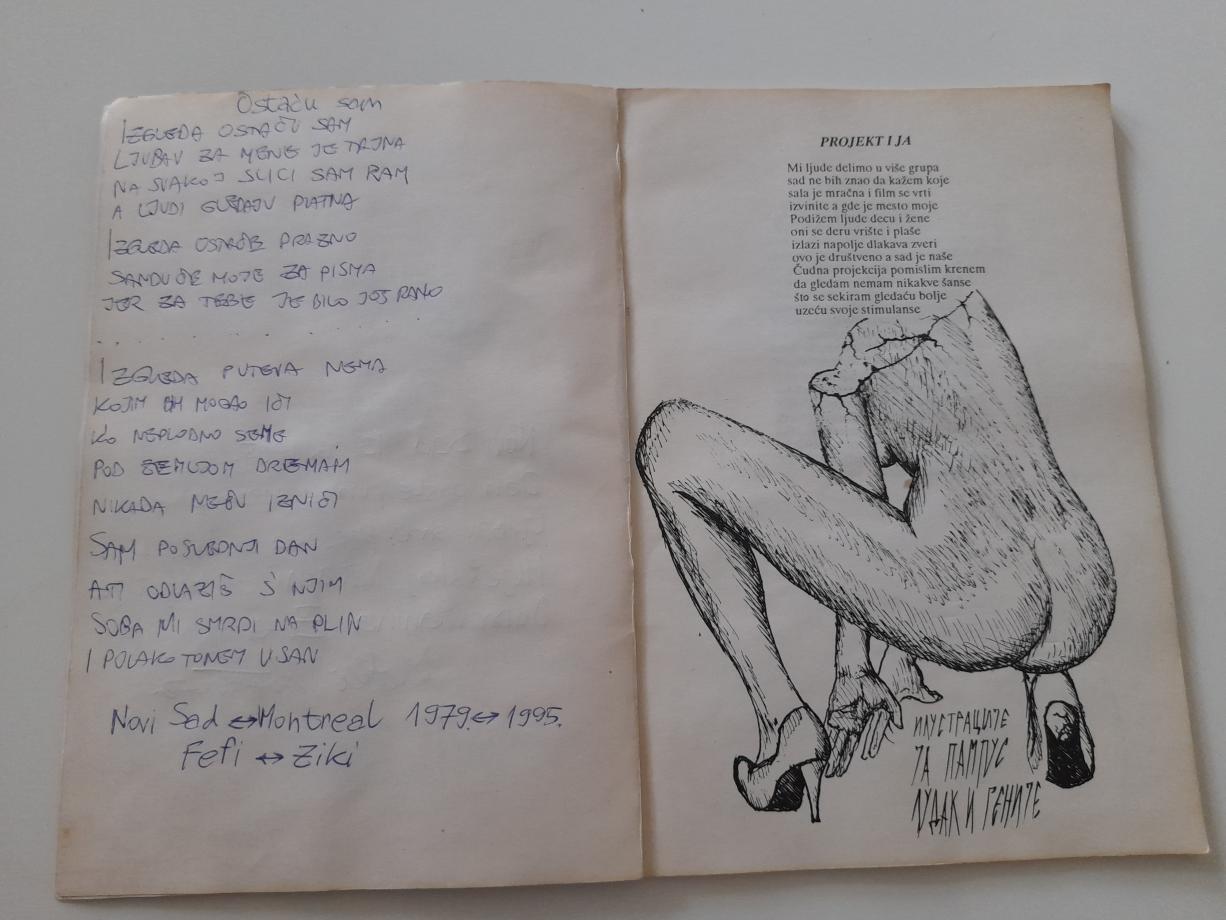 Ostaću sam
IZGLEDA OSTAĆU SAM
LJUBAV ZA MENE JE TAJNA
NA SVAKOJ SLICI SAM RAM
A LJUDI GLEDAJU PLATNA
IZGLEDA OSTAĆE PRAZNO
SANDUČE MOJE ZA PISMA
JER ZA TEBE JE BILO JOŠ RANO
. . . . . . . .
IZGLEDA PUTEVA NEMA
KOJIM BIH MOGAO IĆI
KO NEPLODNO SEME
POD ZEMLJOM DREMAM
NIKADA NEĆU IZNIĆI
SAM POSLEDNJI DAN
A TI ODLAZIŠ S NJIM
SOBA MI SMRDI NA PLIN
I POLAKO TONEM U SAN
Novi Sad ↔ Montreal 1979. ↔ 1995.
Fefi ↔ Ziki
PROJEKT I JA
Mi ljude delimo u više grupa
sad ne bih znao da kažem koje
sala je mračna i film se vrti
izvinite a gde je mesto moje
Podižem ljude decu i žene
oni se deru vrište i plaše
izlazi napolje dlakava zveri
ovo je društveno a sad je naše
Čudna projekcija pomislim krenem
da gledam nemam nikakve šanse
što se sekiram gledaću bolje
uzeću svoje stimulanse
ИЛУСТРАЦИЈЕ
ЗА ПАМПУС
ЛУДАК И